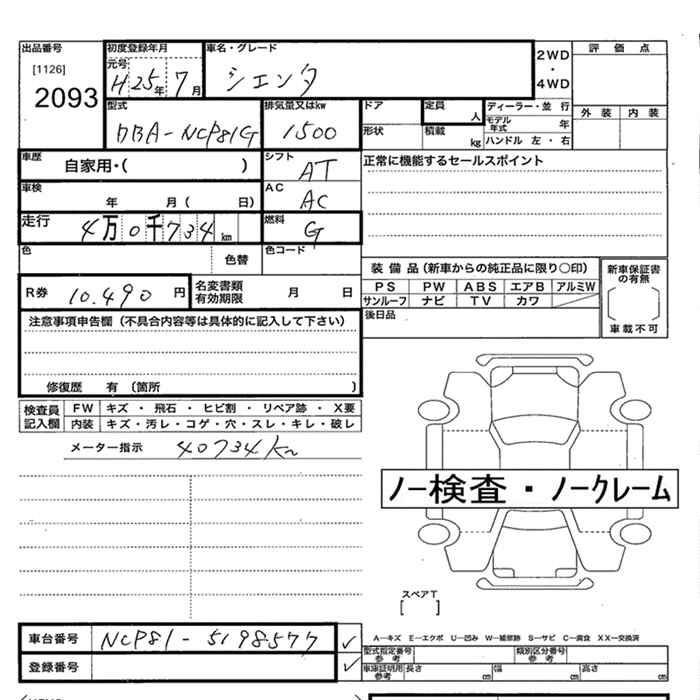 出品番号
[1126]
2093
初度登録年月
元号
H25年7月
車名・グレード
シエンタ
2WD
・
4WD
評 価 点
外 装 内 装
型式
DBA-NCP81G
排気量又はkw
1500
ドア
形状
定員
人
積載
kg
ディーラー・並 行
モデル年式 年
ハンドル 左・右
車歴
自家用・( )
シフト
AT
正常に機能するセールスポイント
車検
年 月( 日)
AC
AC
走行
4万0千734km
燃料
G
色
色替
色コード
装 備 品(新車からの純正品に限り○印)
PS PW ABS エアB アルミW
サンルーフ ナビ TV カワ
新車保証書
の有無
車載不可
R券 10.490 円
名変書類
有効期限
月 日
後日品
注意事項申告欄(不具合内容等は具体的に記入して下さい)
修復歴 有(箇所 )
検査員
記入欄
FW キズ ・ 飛石 ・ ヒビ割 ・ リペア跡 ・ X要
内装 キズ・汚レ・コゲ・穴・スレ・キレ・破レ
メーター指示 40734km
ノー検査・ノークレーム
スペアT
[ ]
車台番号 NCP81-5198577 ✓
登録番号 ✓
A-キズ E-エクボ U-凹み W-補修跡 S-サビ C-腐食 XX-交換済
型式指定番号
参 考
類別区分番号
参 考
車庫証明用
参考
長さ cm 幅 cm 高さ cm